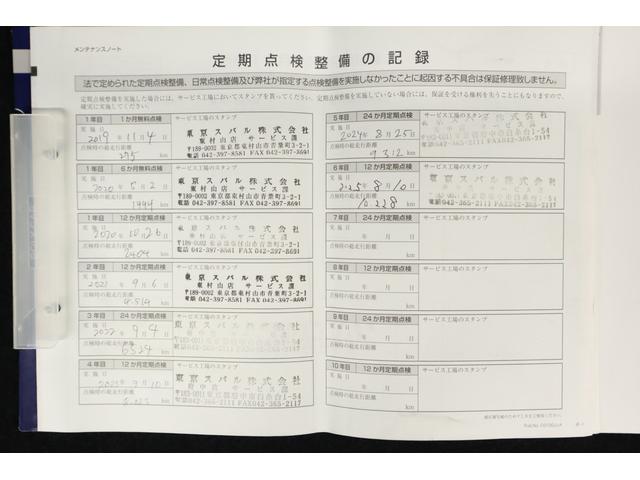 メンテナンスノート
定期点検整備の記録
法で定められた定期点検整備、日常点検整備及び弊社が指定する点検整備を実施しなかったことに起因する不具合は保証修理致しません。
定期点検整備を実施した場合には、サービス工場においてスタンプを貰ってください。定期点検整備を実施していない場合には、保証を受ける権利を失うことにもなりますので、
確実に実施してください。
1年目 1か月無料点検 サービス工場のスタンプ
実施日
2019年11月4日
点検時の総走行距離
km
東京スバル株式会社
東村山店 サービス課
〒189-0002 東京都東村山市青葉町3-2-1
電話 042-397-8581 FAX 042-397-8691
1年目 6か月無料点検 サービス工場のスタンプ
実施日
2020年5月2日
点検時の総走行距離
1994 km
東京スバル株式会社
東村山店 サービス課
〒189-0002 東京都東村山市青葉町3-2-1
電話 042-397-8581 FAX 042-397-8691
1年目 12か月定期点検 サービス工場のスタンプ
実施日
2020年10月26日
点検時の総走行距離
km
東京スバル株式会社
東村山店 サービス課
〒189-0002 東京都東村山市青葉町3-2-1
電話 042-397-8581 FAX 042-397-8691
2年目 12か月定期点検 サービス工場のスタンプ
実施日
2021年9月6日
点検時の総走行距離
km
東京スバル株式会社
東村山店 サービス課
〒189-0002 東京都東村山市青葉町3-2-1
電話 042-397-8581 FAX 042-397-8691
3年目 24か月定期点検 サービス工場のスタンプ
実施日
2022年9月4日
点検時の総走行距離
6524 km
東京スバル株式会社
4年目 12か月定期点検 サービス工場のスタンプ
実施日
2023年9月10日
点検時の総走行距離
km
東京スバル株式会社
府中店 サービス課
〒183-0011 東京都府中市白糸台1-54
電話 042-365-2111 FAX042-365-2117
5年目 24か月定期点検 サービス工場のスタンプ
実施日
2024年8月25日
点検時の総走行距離
9312 km
6年目 12か月定期点検 サービス工場のスタンプ
実施日
2025年8月10日
点検時の総走行距離
10228 km
7年目 24か月定期点検 サービス工場のスタンプ
実施日
年 月 日
点検時の総走行距離
km
8年目 12か月定期点検 サービス工場のスタンプ
実施日
年 月 日
点検時の総走行距離
km
9年目 24か月定期点検 サービス工場のスタンプ
実施日
年 月 日
点検時の総走行距離
km
10年目 12か月定期点検 サービス工場のスタンプ
実施日
年 月 日
点検時の総走行距離
km